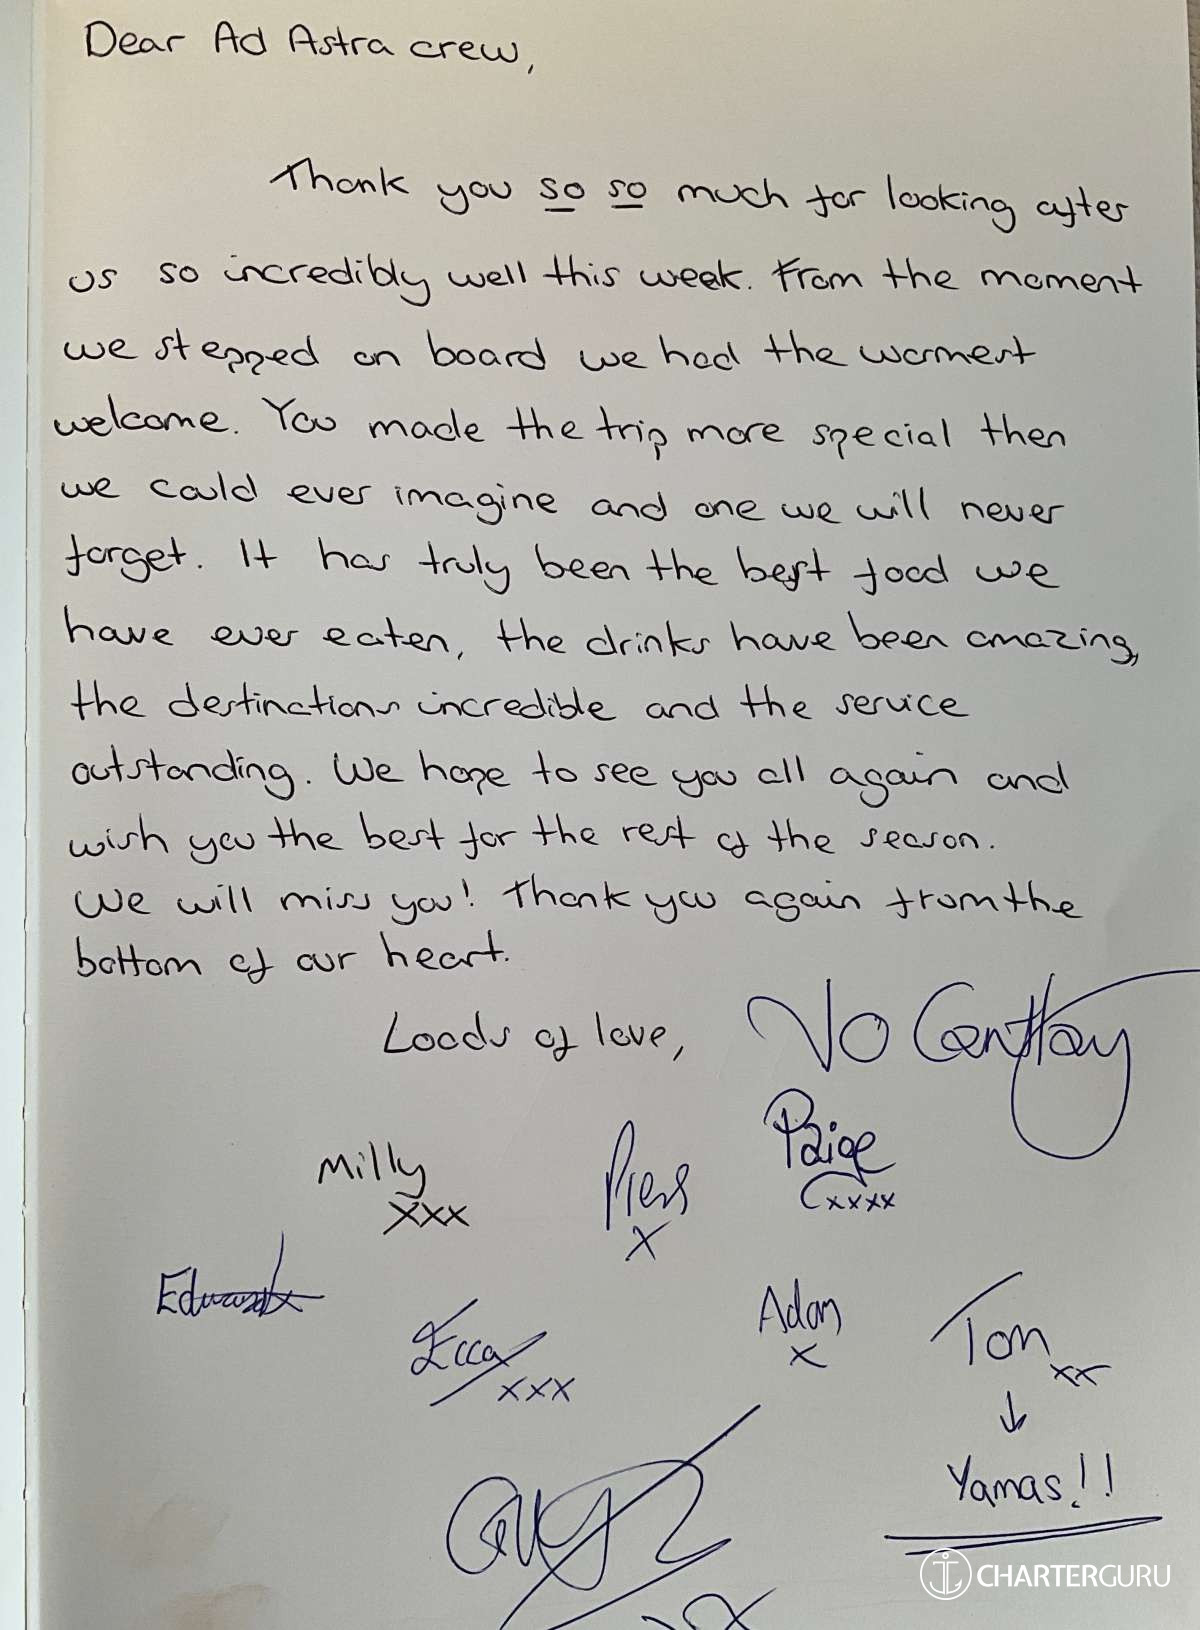 Dear Ad Astra crew,
Thank you so so much for looking after
us so incredibly well this week. From the moment
we stepped on board we had the warmest
welcome. You made the trip more special then
we could ever imagine and one we will never
forget. It has truly been the best food we
have ever eaten, the drinks have been amazing,
the destinations incredible and the service
outstanding. We hope to see you all again and
wish you the best for the rest of the season.
We will miss you! Thank you again from the
bottom of our heart.
Loads of love,
Milly
xxx
Piers
x
Paige
xxxx
Edward
Ecca
xxx
Adam
x
Tom
xx
↓
Yamas!!
CHARTERGURU